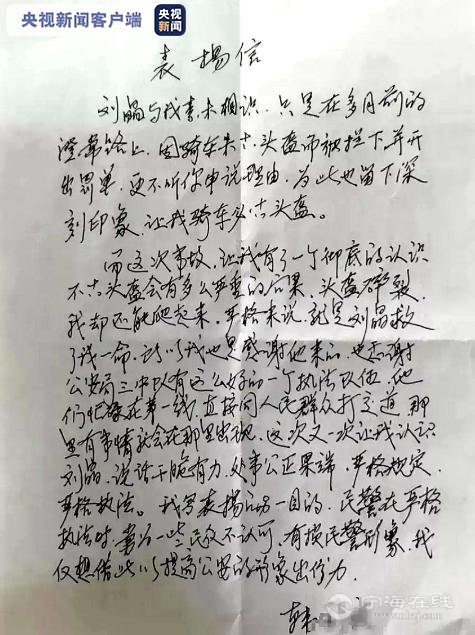 央视新闻客户端
央视新闻
表扬信
刘晶与我素未相识，只是在多月前的
路上，因骑车未带头盔而被拦下并开
出罚单，更不听你申说理由，为此也留下深
刻印象，让我骑车必带头盔。
而这次事故，让我有了一个彻底的认识
不带头盔会有多么严重的后果，头盔碎裂，
我却还能爬起来，严格来说，就是刘晶救
了我一命，所以我也是感谢他来的，也感谢
公安局三中队有这么好的一个执法队伍，他
们忙碌在第一线，直接同人民群众打交道，那
里有事情就会在那里出现，这次又一次让我认识
刘晶，说话干脆有力，处事公正果端，严格规定，
严格执法。我写表扬一目的，民警在严格
执法时，常为一些民众不认可，有损民警形象，我
仅想借此以提高公安的形象出份力。
韩
宁海在线
www.nhzj.com